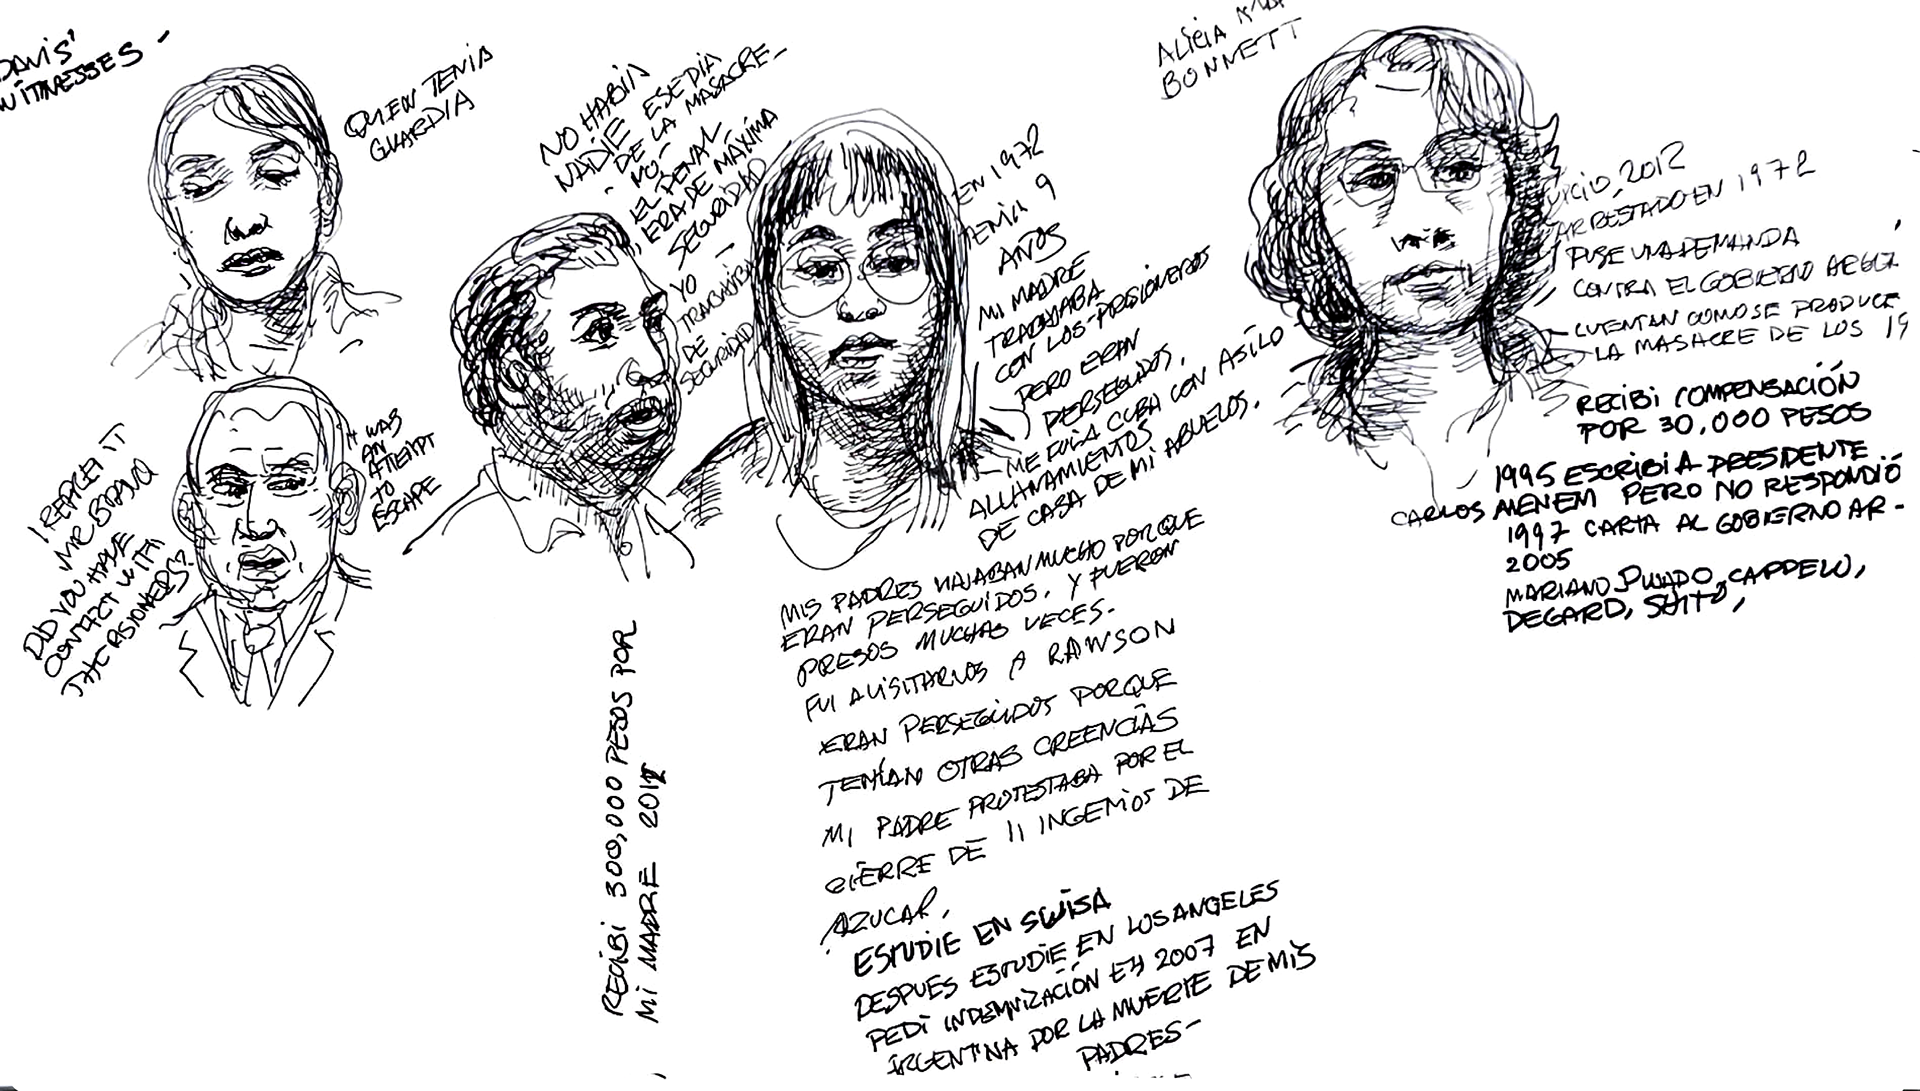 DAVIS'
WITNESSES -
QUIEN TENIA
GUARDIA
I REPEAT IT
MR BRAVO
DID YOU HAVE
CONTACT WITH
THE PRISIONERS?
IT WAS
AN
ATTEMPT
TO
ESCAPE
NO HABIA
NADIE ESE DIA
DE LA MASACRE-
NO-
EL PENAL
ERA DE MÁXIMA
SEGURIDAD
YO
TRABAJABA
DE
SEGURIDAD
RECIBI 300,000 PESOS POR
MI MADRE
EN 1972
TENIA 9
AÑOS
MI MADRE
TRABAJABA
CON LOS PRISIONEROS
PERO ERAN
PERSEGUIDOS,
ME FUI A CUBA CON ASILO
ALLANAMIENTOS
DE CASA DE MI ABUELOS.
MIS PADRES VIAJABAN MUCHO PORQUE
ERAN PERSEGUIDOS. Y FUERON
PRESOS MUCHAS VECES.
FUI A VISITARLOS A RAWSON
ERAN PERSEGUIDOS PORQUE
TENÍAN OTRAS CREENCIAS
MI PADRE PROTESTABA POR EL
CIERRE DE 11 INGENIOS DE
AZUCAR,
ESTUDIE EN SUISA
DESPUES ESTUDIE EN LOS ANGELES
PEDI INDEMNIZACIÓN EN 2007 EN
ARGENTINA POR LA MUERTE DE MIS
PADRES-
ALICIA
BONNETT
2012
ARRESTADO EN 1972
PUSE UNA DEMANDA
CONTRA EL GOBIERNO
CUENTAN COMO SE PRODUCE
LA MASACRE DE LOS 19
RECIBI COMPENSACIÓN
POR 30,000 PESOS
1995 ESCRIBI A PRESIDENTE
CARLOS MENEM PERO NO RESPONDIÓ
1997 CARTA AL GOBIERNO AR-
2005
MARIANO PUJADO, CAPPELO,
DEGARD,